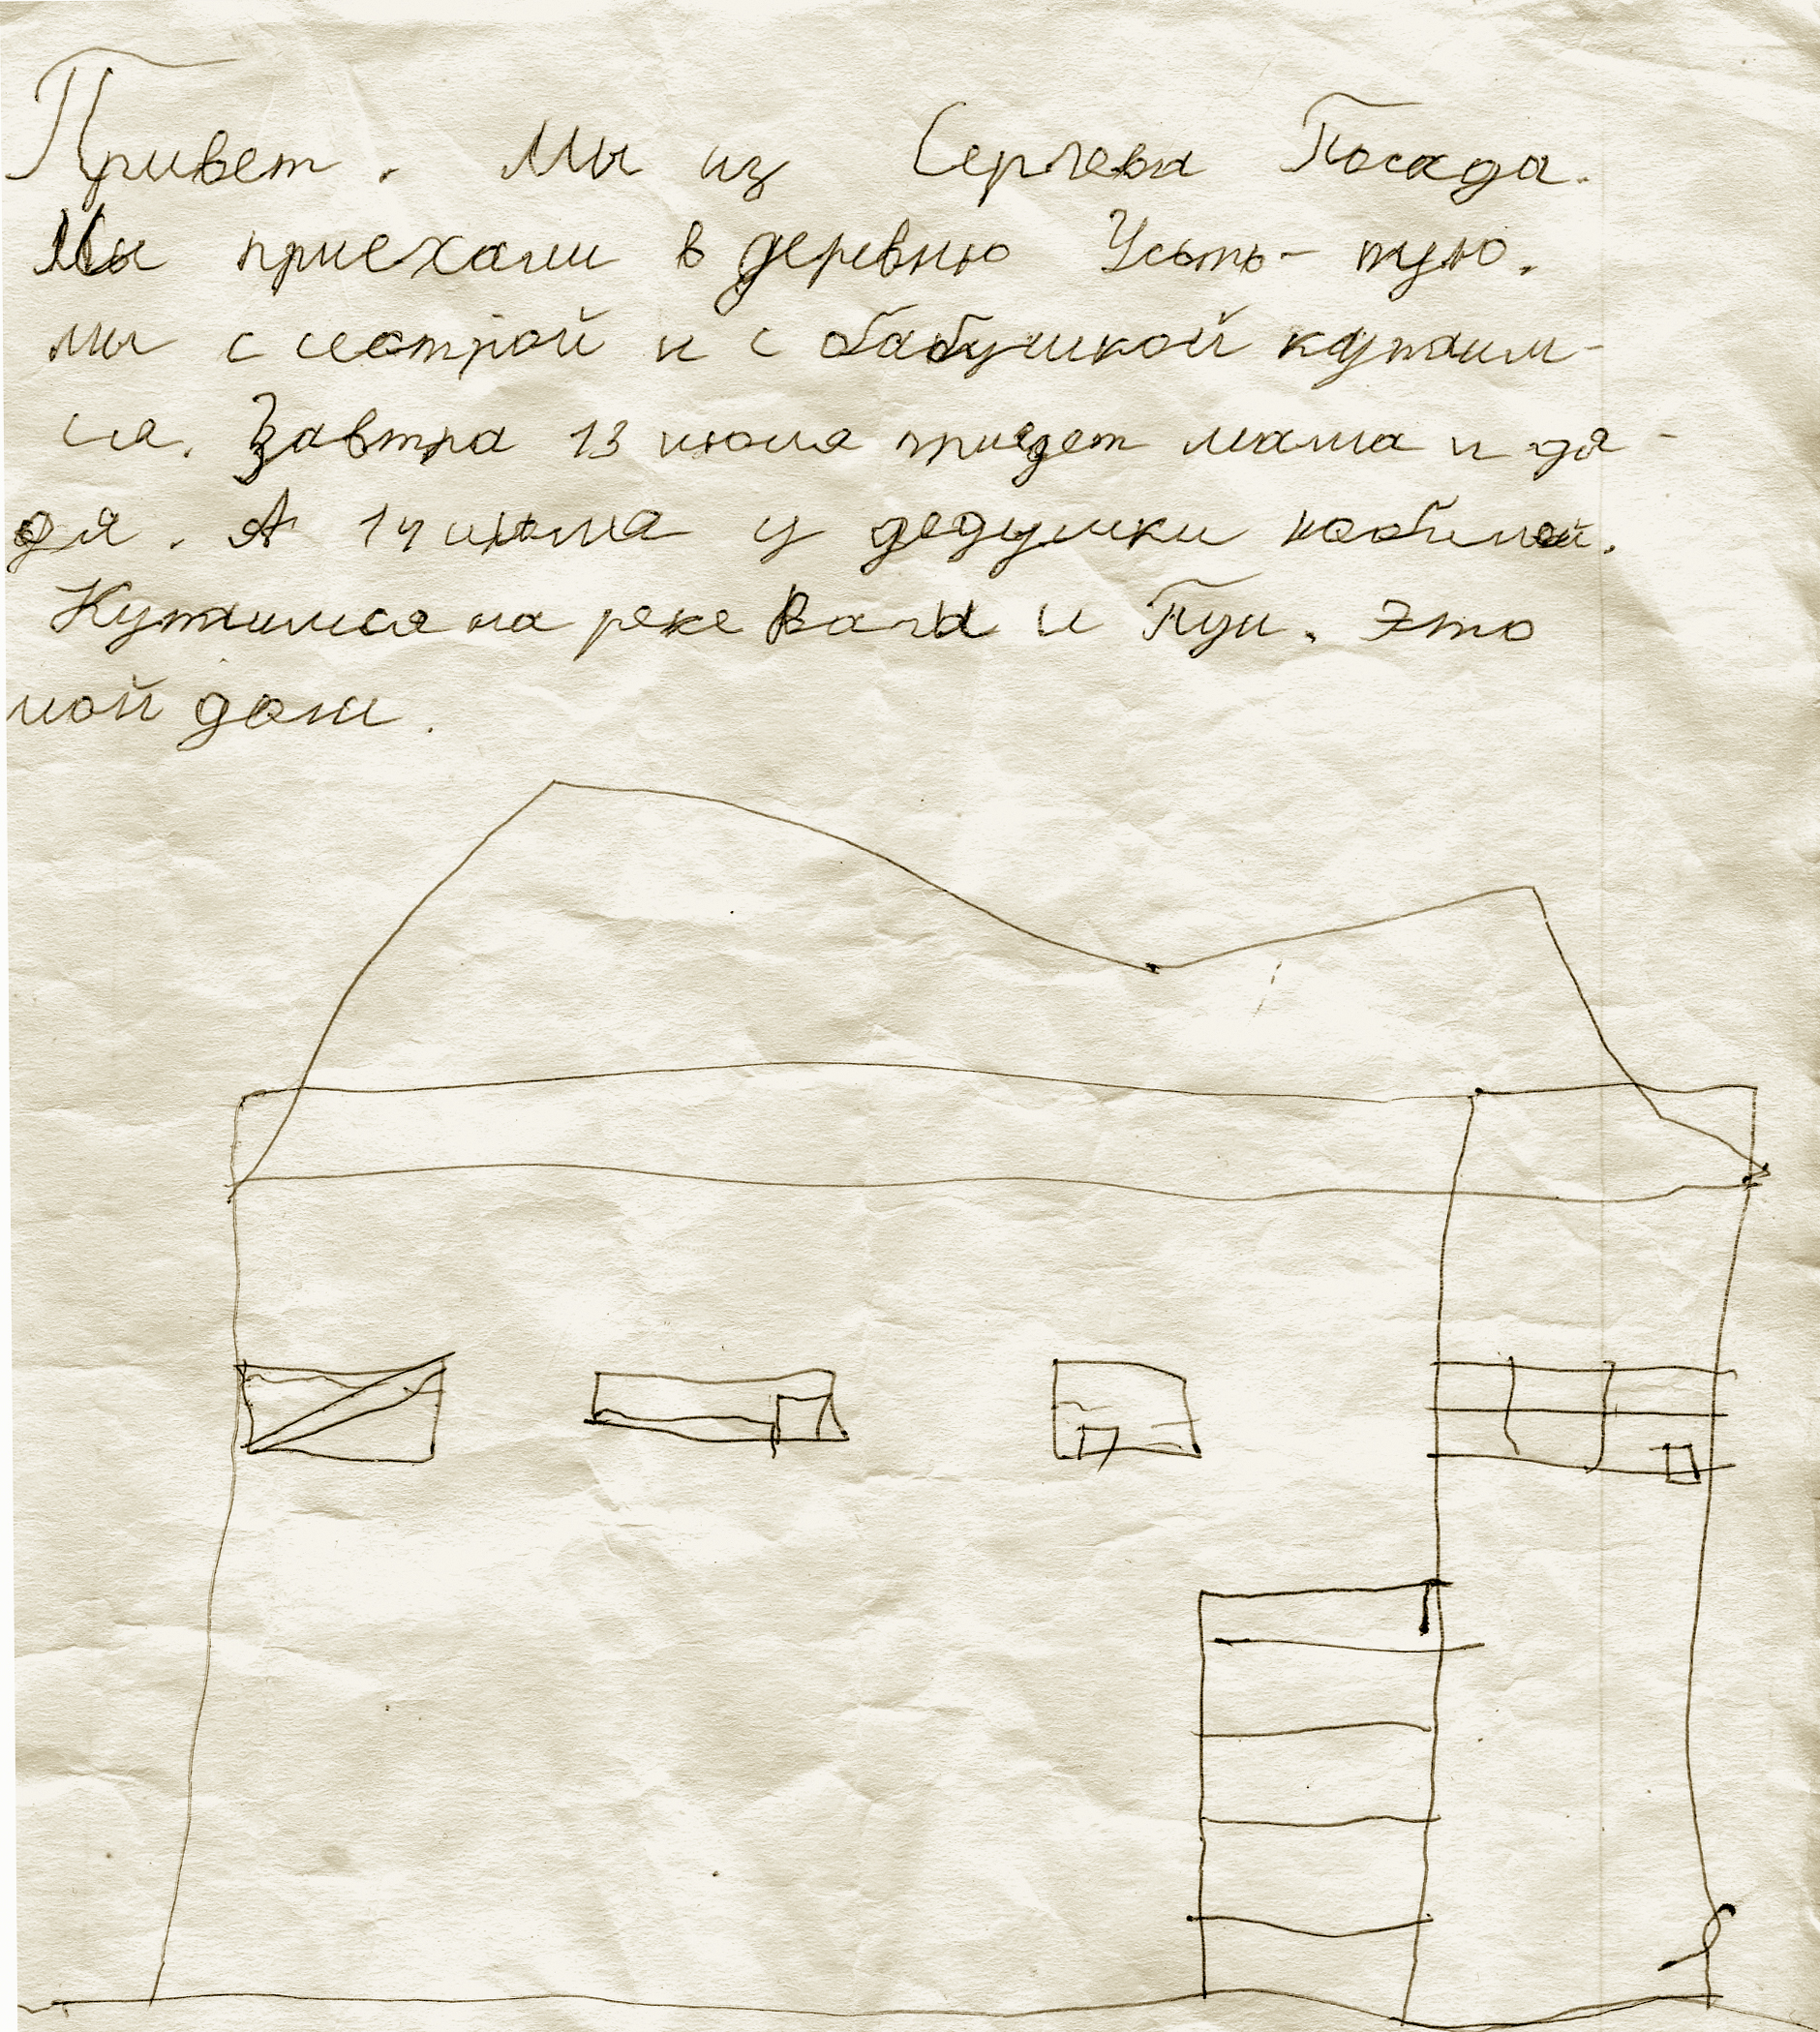 Привет. Мы из Сергева Посада.
Мы приехали в деревню Усть-тую.
мы с сестрой и с бабушкой купаим-
ся. Завтра 13 июля приедет мама и дя-
дя. А 14 июля у дедушки юбилей.
Купаимся на реке Ваги и Пуи. Это
мой дом.